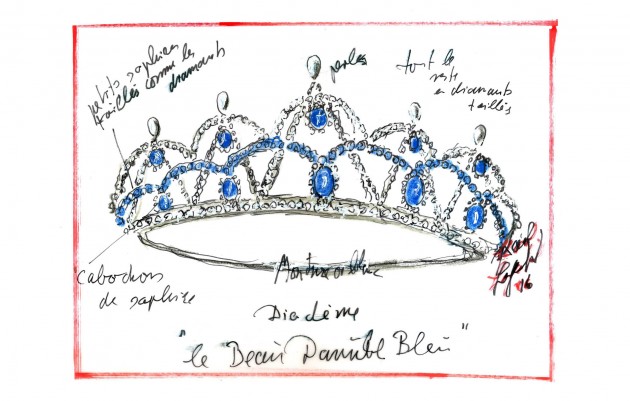 petits saphires
taillés comme les
diamants
perles
tout le
reste
en diamants
taillés
cabochons
de saphire
Monture or blanc
Diadème
"le Beau Danube Bleu"
Karl
Lagerfeld
16